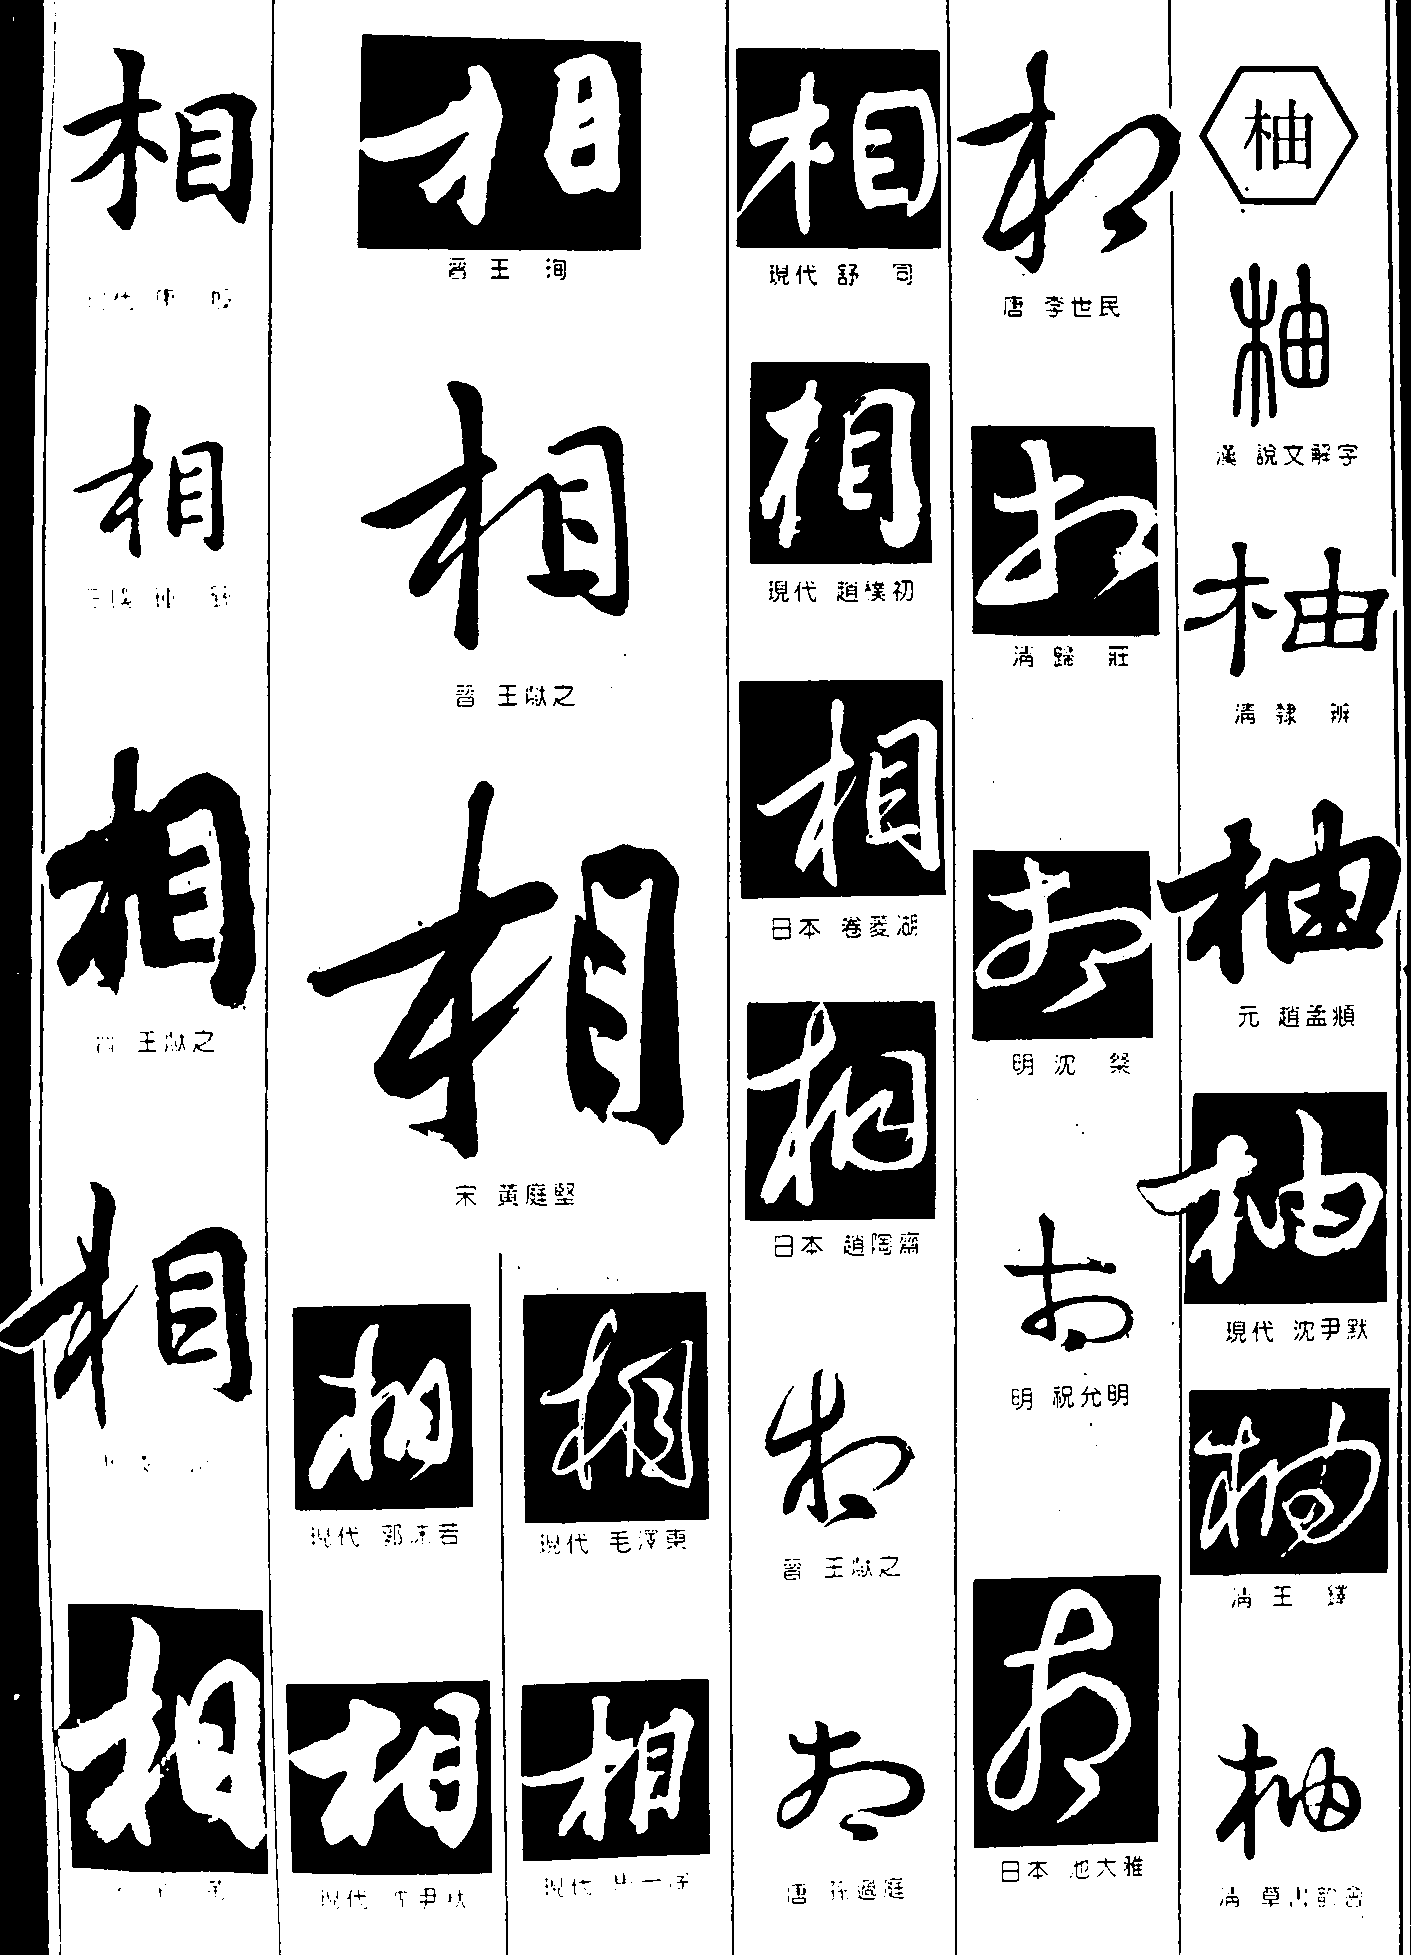 柚
柚
漢 說文解字
柚
清 隸 辨
柚
元 趙孟頫
柚
現代 沈尹默
柚
清 王 鐸
柚
清 草書韵會
相
唐 李世民
相
清 歸 莊
相
明 沈 粲
相
明 祝允明
相
日本 池大雅
相
現代 舒 同
相
現代 趙樸初
相
日本 卷菱湖
相
日本 趙陶齋
相
晉 王献之
相
唐 孫過庭
相
晉 王 洵
相
晉 王献之
相
宋 黃庭堅
相
現代 毛澤東
相
現代
相
現代 郭沫若
相
現代 沈尹默
相
相
相
晉 王献之
相
相